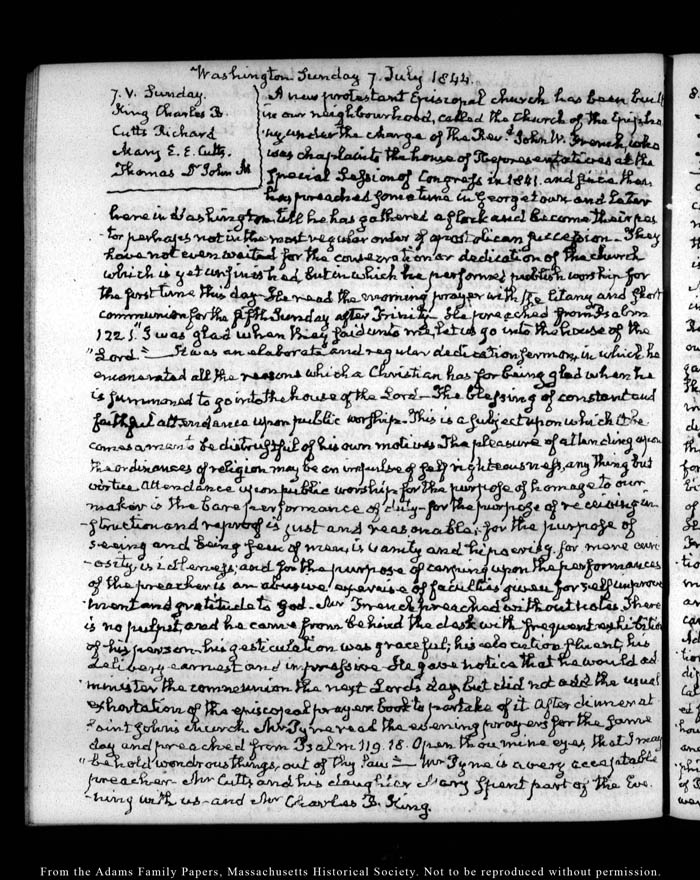 Washington Sunday 7. July 1844.
7. V. Sunday.
King Charles B.
Cutts Richard
Mary E. E. Cutts.
Thomas D John M
A new protestant Episcopal church has been built
in our neighbourhood, called the Church of the Epipha
ny under the charge of the Revd. John W. French, who
was chaplain to the house of Representatives at the
special Session of Congress in 1841. and since then
has preached some time in Georgetown and later
here in Washington till he has gathered a flock and become their pas
tor perhaps not in the most regular order of apostolican succession. They
have not even waited for the consecration or dedication of the church
which is yet unfinished, but in which he performed publish worship for
the first time this day. He read the morning prayer with the litany and short
communion for the fifth Sunday after Trinity. He preached from Psalm
122 1. "I was glad when they said unto me, let us go into the house of the
"Lord." It was an elaborate and regular dedication sermon, in which he
enumerated all the reasons which a Christian has for being glad when he
is summoned to go into the house of the Lord. The blessing of constant and
faithful attendance upon public worship. This is a subject upon which it be
comes a man to be distrustful of his own motives. The pleasure of attending upon
the ordinances of religion may be an impulse of self righteousness, any thing but
virtue. Attendance upon public worship for the purpose of homage to our
maker is the bare performance of duty - for the purpose of receiving in
struction and reproof is just and reasonable; for the purpose of
seeing and being seen of men, is vanity and hipocrisy, for mere curi
osity, is idleness; and for the purpose of carping upon the performances
of the preacher is an abusive exercise of faculties given for self improve
ment and gratitude to God. Mr French preached without notes. There
is no pulpit, and he came from behind the desk with frequent exhibition
of his person - his gesticulation was graceful; his elocution fluent, his
delivery earnest and impressive. He gave notice that he would ad
minister the communion the next Lord's day, but did not add the usual
exhortation of the episcopal prayer book to partake of it. After dinner at
Saint John's church Mr Pyne read the evening prayers for the same
day and preached from Psalm 119. 18. Open thou mine eyes, that I may
"behold wondrous things, out of thy law" Mr Pyne is a very acceptable
preacher. Mr Cutts and his daughter Mary spent part of the Eve
ning with us - and Mr Charles B. King.
8.
From the Adams Family Papers, Massachusetts Historical Society. Not to be reproduced without permission.